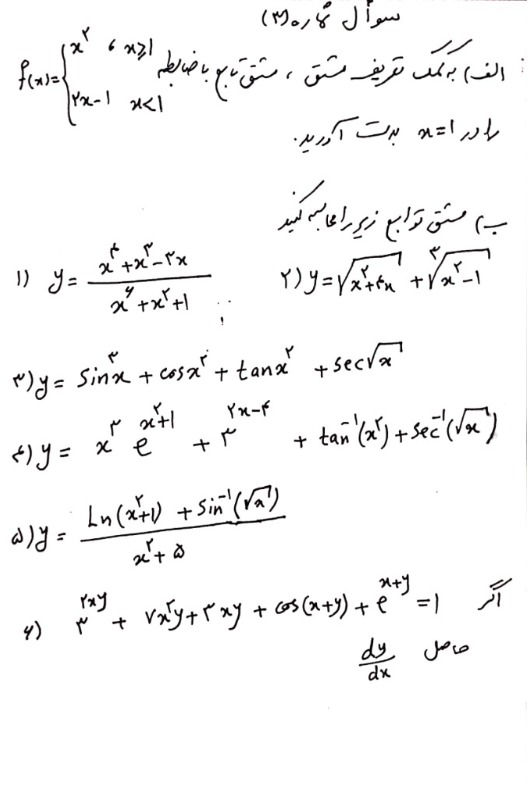 سوال شماره (۳)
الف) به کمک تعریف مشتق ، مشتق تابع با ضابطه f(x)={x^۲ ، x≥1 ; ۲x-1 x<1
را در x=1 بدست آورید.
ب) مشتق توابع زیر را محاسبه کنید
1) y = (x^۴+x^۳-۲x)/(x^۶+x^۲+1) ۲) y=√(x^۲+۴x) + ∛(x^۲-1)
۳) y = sin^۳x + cosx^۲ + tanx^۲ + sec√x
۴) y = x^۳ e^(x^۲+1) + ۳^(۲x-۴) + tan^-1(x^۲) + sec^-1(√x)
۵) y = (Ln(x^۲+1) + sin^-1(√x))/(x^۲+۵)
۶) ۳^(۲xy) + ۷x^۲y + ۳xy + cos(x+y) + e^(x+y) = 1 اگر
dy/dx حاصل